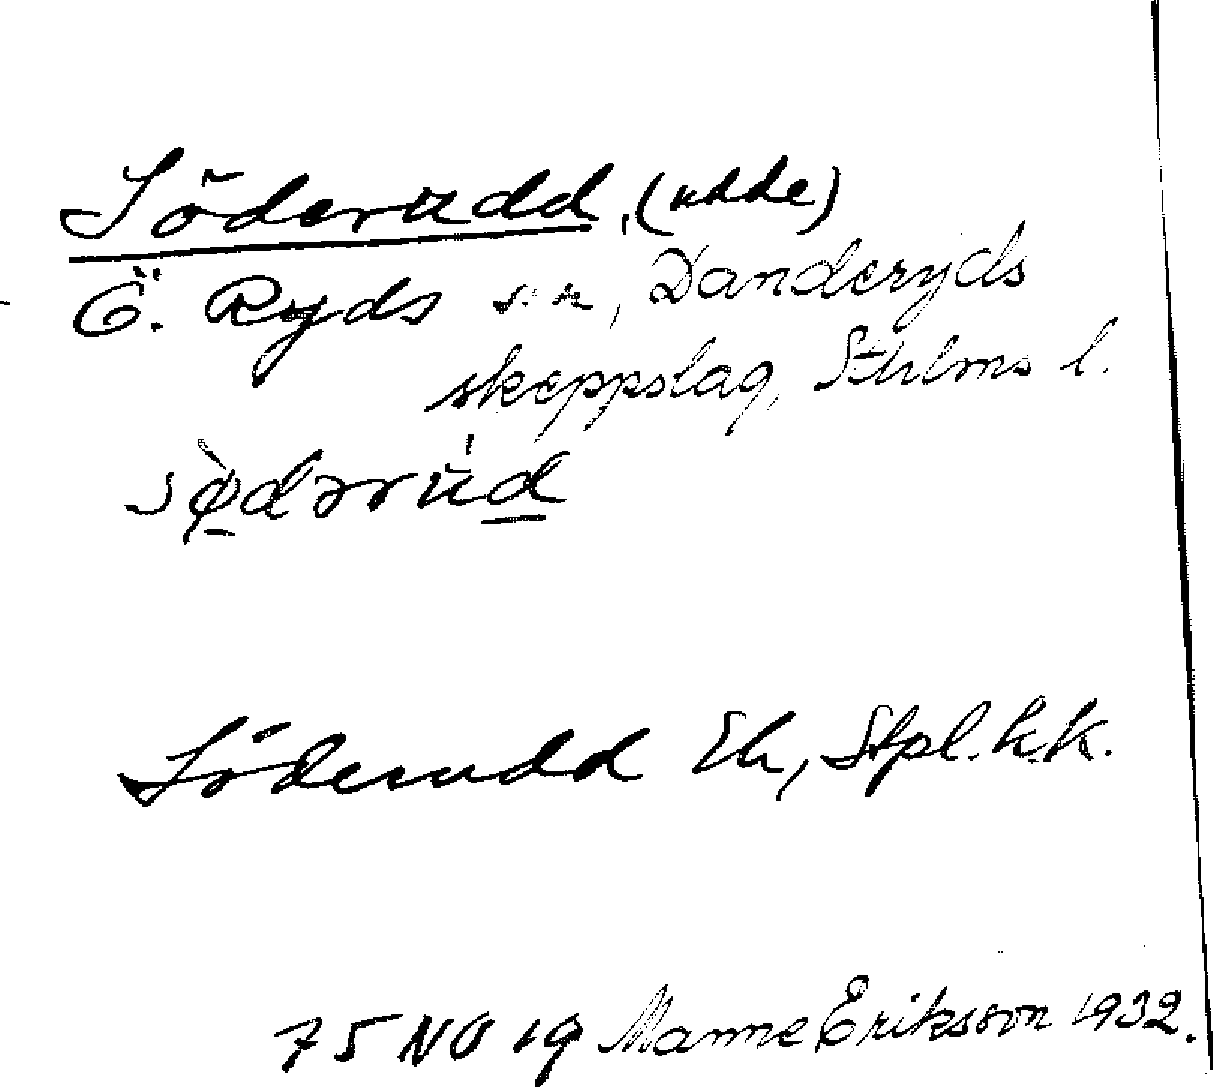 Söderudd, (udde)
Ö. Ryds sn, Danderyds
skeppslag, Sthlms l.
Söderudd Ek, Stpl. k.k.
75 NO 19 Manne Eriksson 1932.